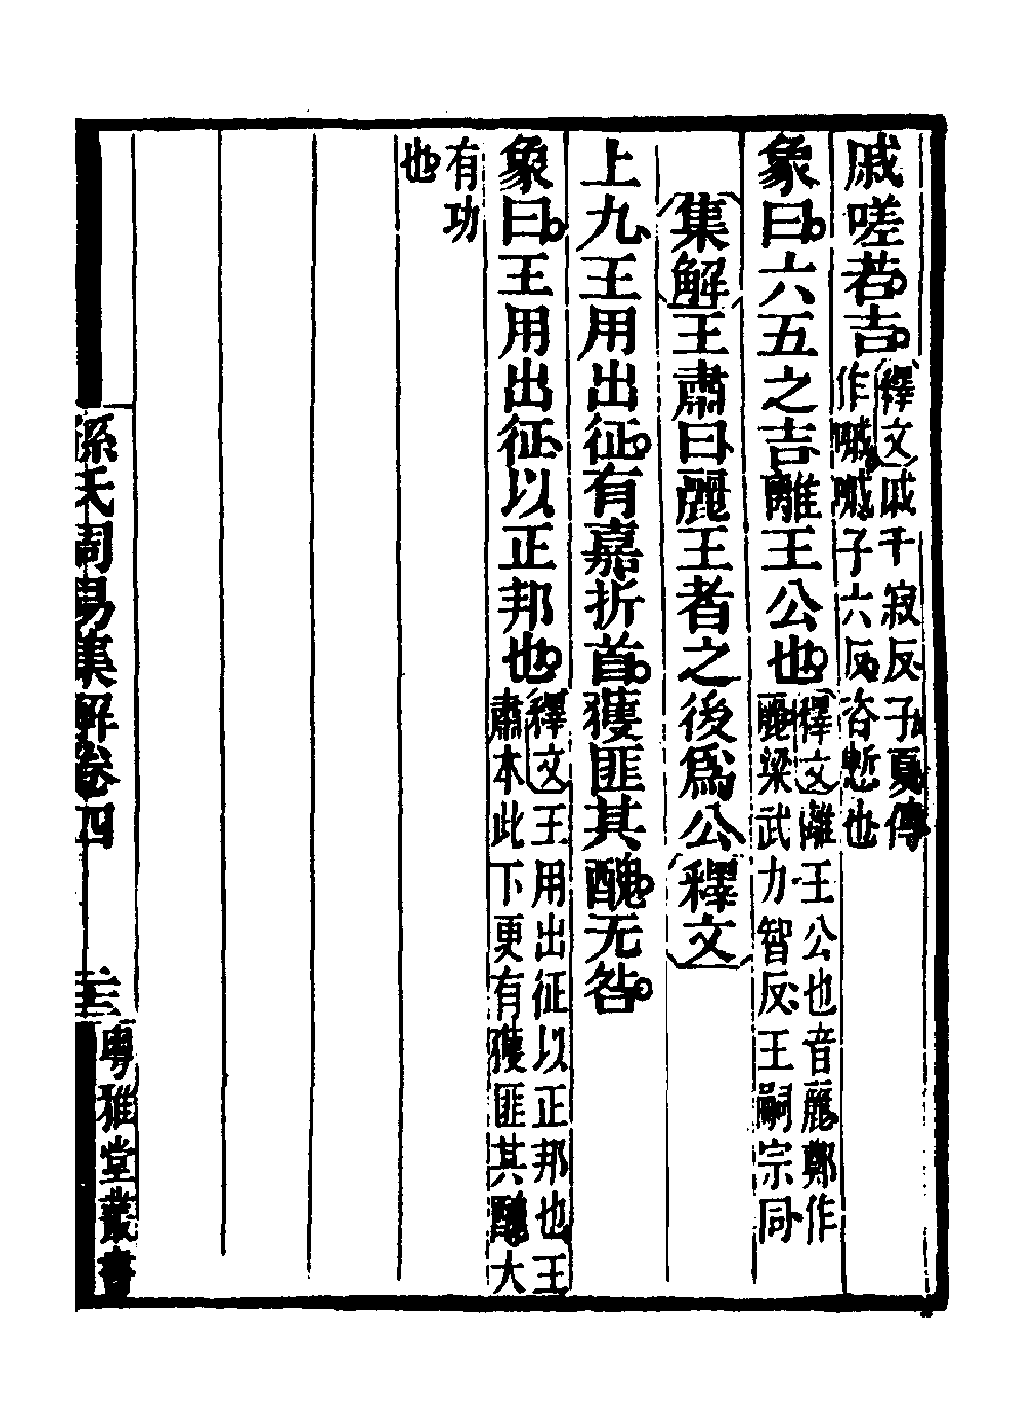 戚嗟若吉。〔釋文〕戚千寂反子夏傳
作嘁嘁子六反咨慙也
象曰。六五之吉離王公也。〔釋文〕離王公也音麗鄭作
麗梁武力智反王嗣宗同
〔集解〕王肅曰麗王者之後爲公〔釋文〕
上九、王用出征。有嘉折首。獲匪其醜。无咎。
象曰。王用出征、以正邦也。〔釋文〕王用出征以正邦也王
肅本此下更有獲匪其醜大
有功
也
孫氏周易集解卷四
三
粵雅堂叢書